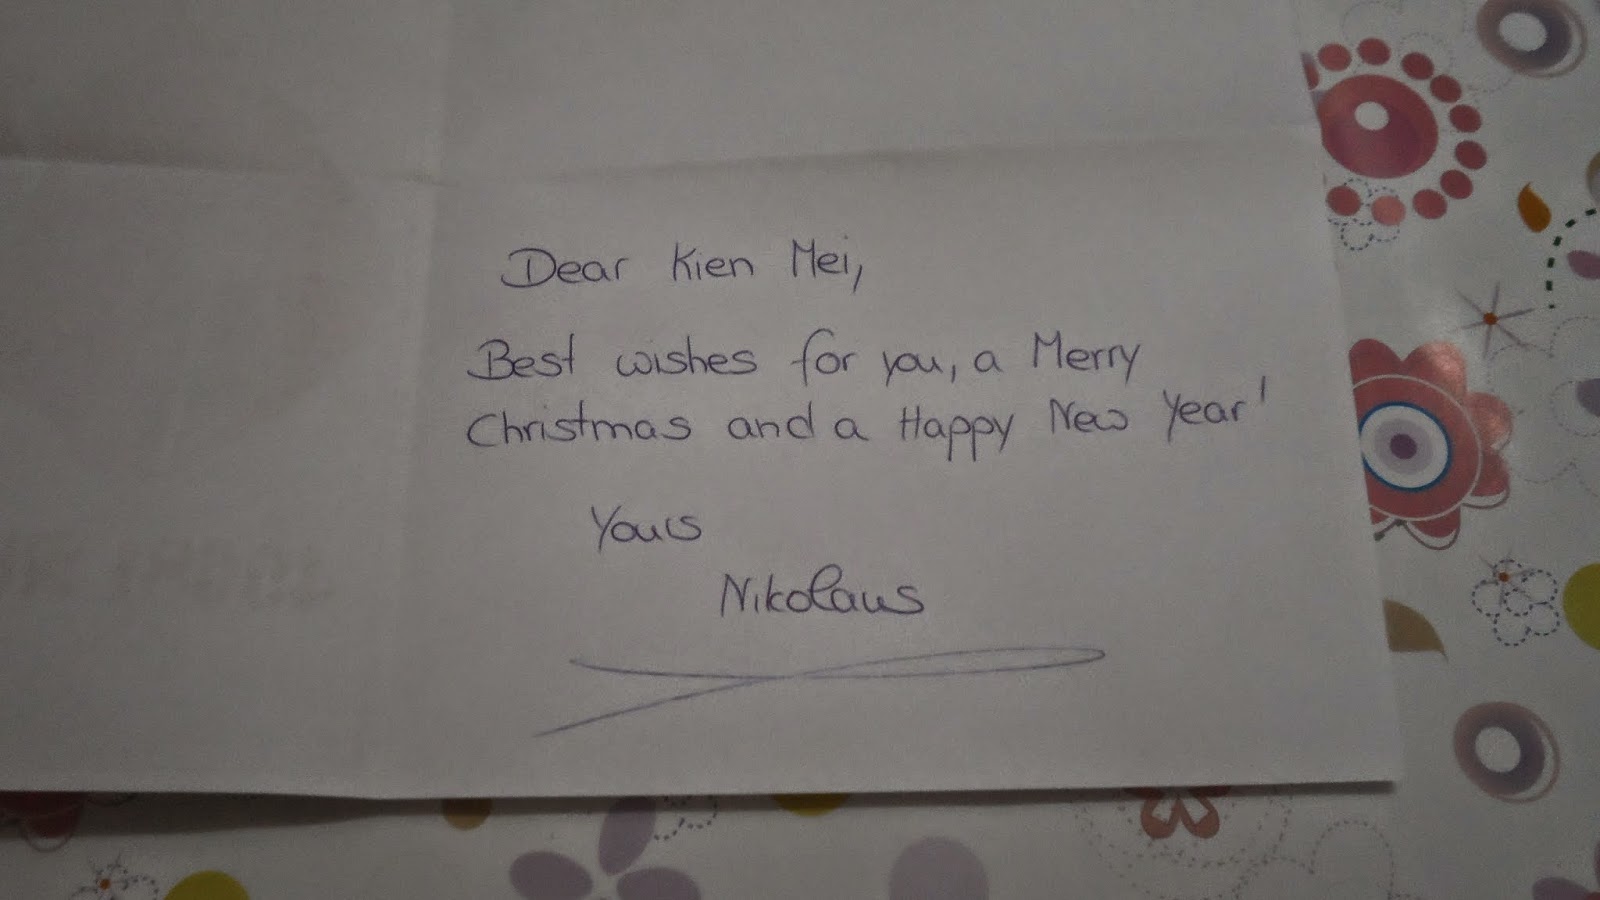 Dear Kien Mei,
Best wishes for you, a Merry
Christmas and a Happy New Year!
Yours
Nikolaus